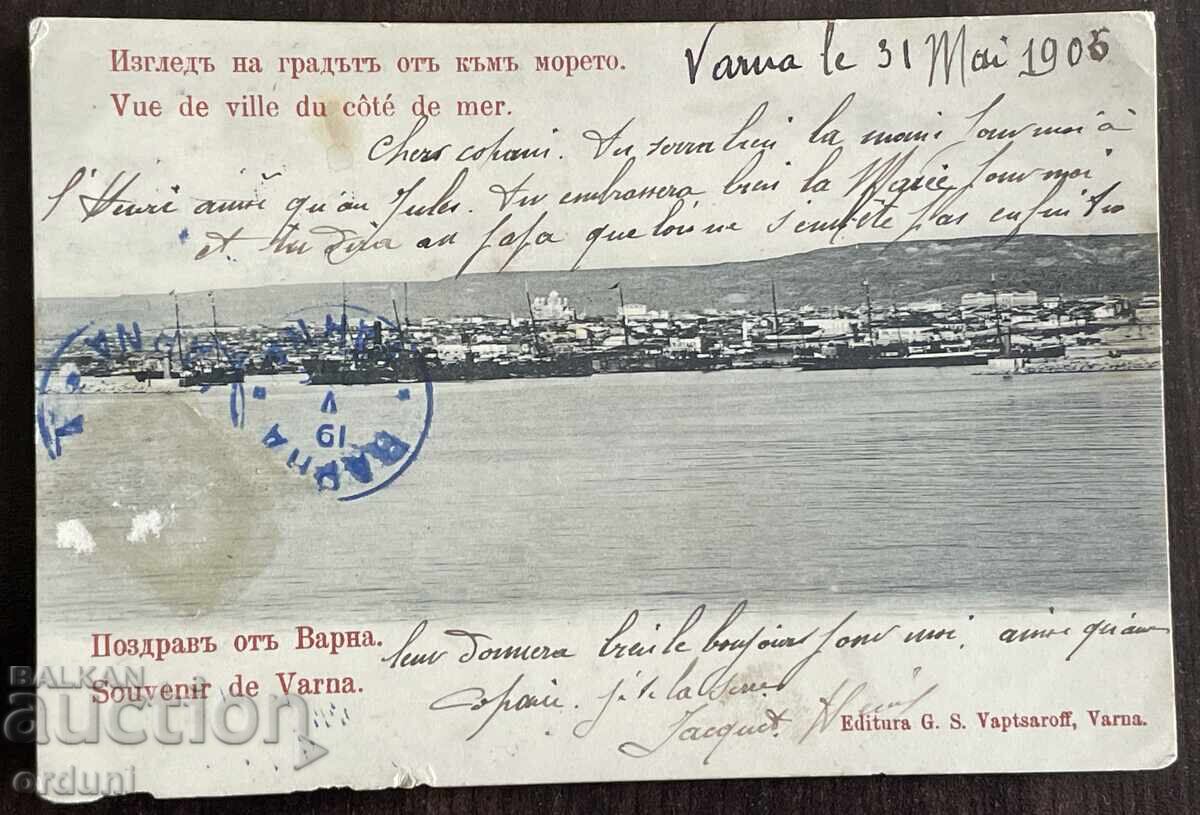 Изгледъ на градътъ отъ къмъ морето.
Vue de ville du côté de mer.
Varna le 31 Mai 1905
Chers copain. tu serra bien la main pour moi à
l'Henri ainsi qu'au Jules. tu embrassera bien la Marie pour moi
et tu dira au papa que loin ne s'embête pas enfin tu
ВАРНА
V
19
ВАРНА
Поздравъ отъ Варна.
Souvenir de Varna.
leur donnera bien le bonjour pour moi, ainsi qu'au
copain. je te la serre
Jacquet
Editura G. S. Vaptsaroff, Varna.
BALKAN
auction
orduni